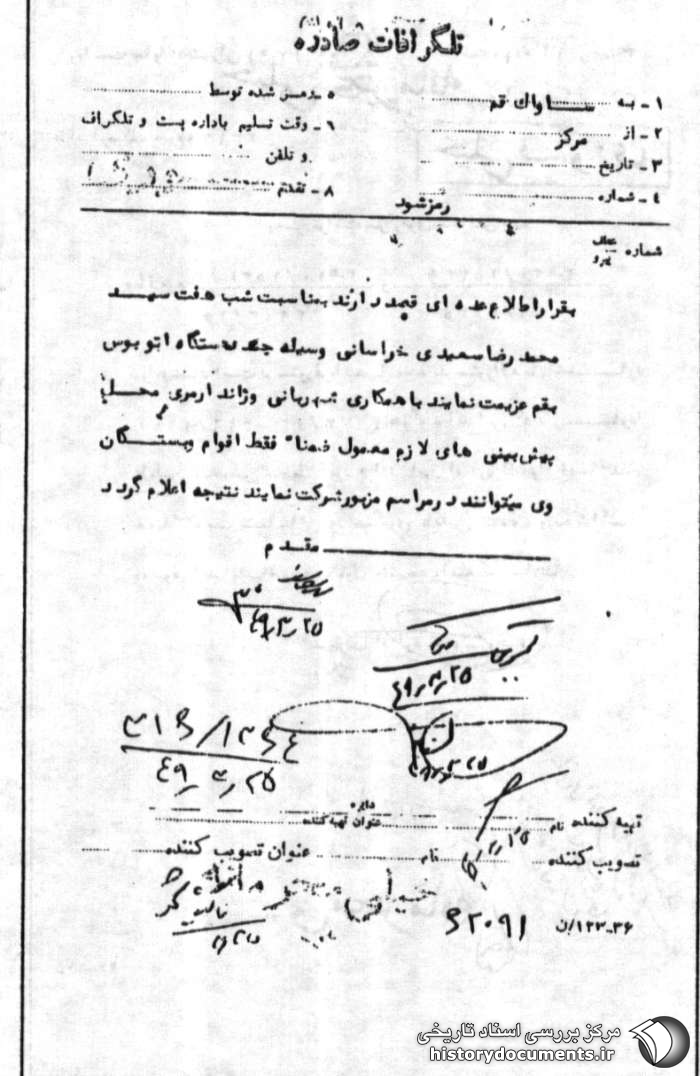 تلگرافات صادره
۱ - به ... ساواك قم
۲ - از ... مركز
۳ - تاریخ
۴ - شماره
۵ - رمز شده توسط
۶ - وقت تسلیم باداره پست و تلگراف و تلفن
۸ - تقدم
رمز شود
شماره عطف پیرو
بقرار اطلاع عده ای قصد دارند بمناسبت شب هفت سید
محمد رضا سعیدی خراسانی وسیله چند دستگاه اتوبوس
بقم عزیمت نمایند با همکاری شهربانی و ژاندارمری محل
پیش بینی های لازم معمول ضمنا" فقط اقوام و بستگان
وی میتوانند در مراسم مزبور شرکت نمایند نتیجه اعلام گردد
مقدم
۴۹/۳/۲۵
۴۹/۳/۲۵
۳۱۶/۱۳۶۴
۴۹/۳/۲۵
۴۹/۳/۲۵
تهیه کننده نام دایره عنوان تهیه کننده
تصویب کننده نام عنوان تصویب کننده
۳۶-۱۲۳/ن
مرکز بررسی اسناد تاریخی
historydocuments.ir